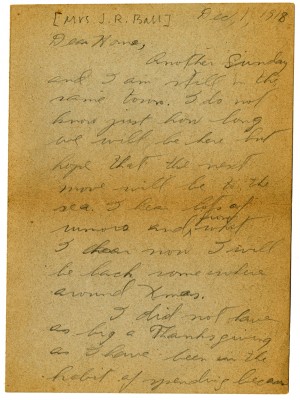 [Mrs. J. R. Ball] Dec. 1, 1918
Dear Home,
Another Sunday
and I am still in the
same town. I do not
know just how long
we will be here but
hope that the next
move will be to the
sea. I hear lots of
rumors and, from what
I hear now I will
be back somewhere
around Xmas.
I did not have
as big a Thanksgiving
as I have been in the
habit of spending becau